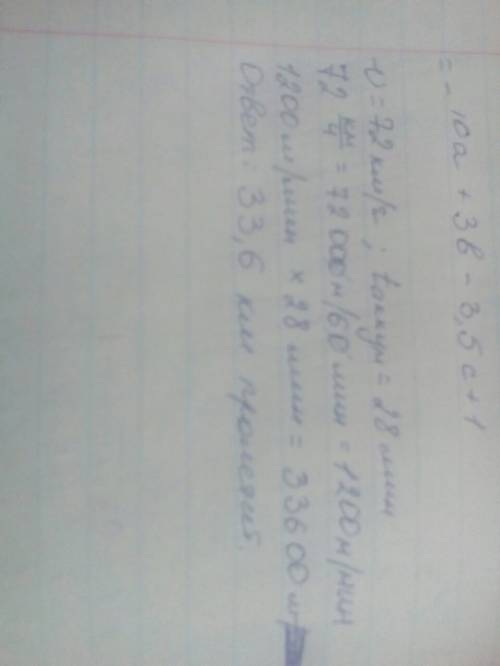 = - 10a + 3b - 3,5c + 1
υ = 72 км/ч ; = 28 мин
72 км/ч = 72 000м/60 мин = 1200м/мин
1200м/мин × 28 мин = 33600 м
Ответ: 33,6 км пролетит.